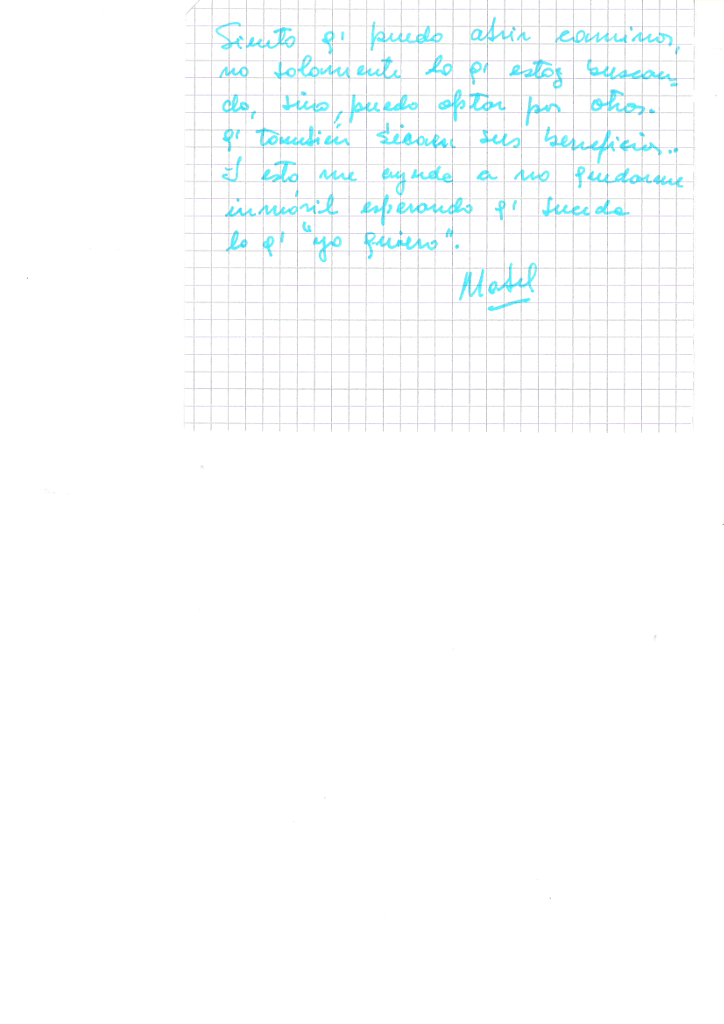 Siento q' puedo abrir caminos,
no solamente lo q' estoy buscan-
do, sino, puedo optar por otros.
q' también sus beneficios..
esto me ayuda a no quedarme
inmóvil esperando q' suceda
lo q' "yo quiero".
Mabel